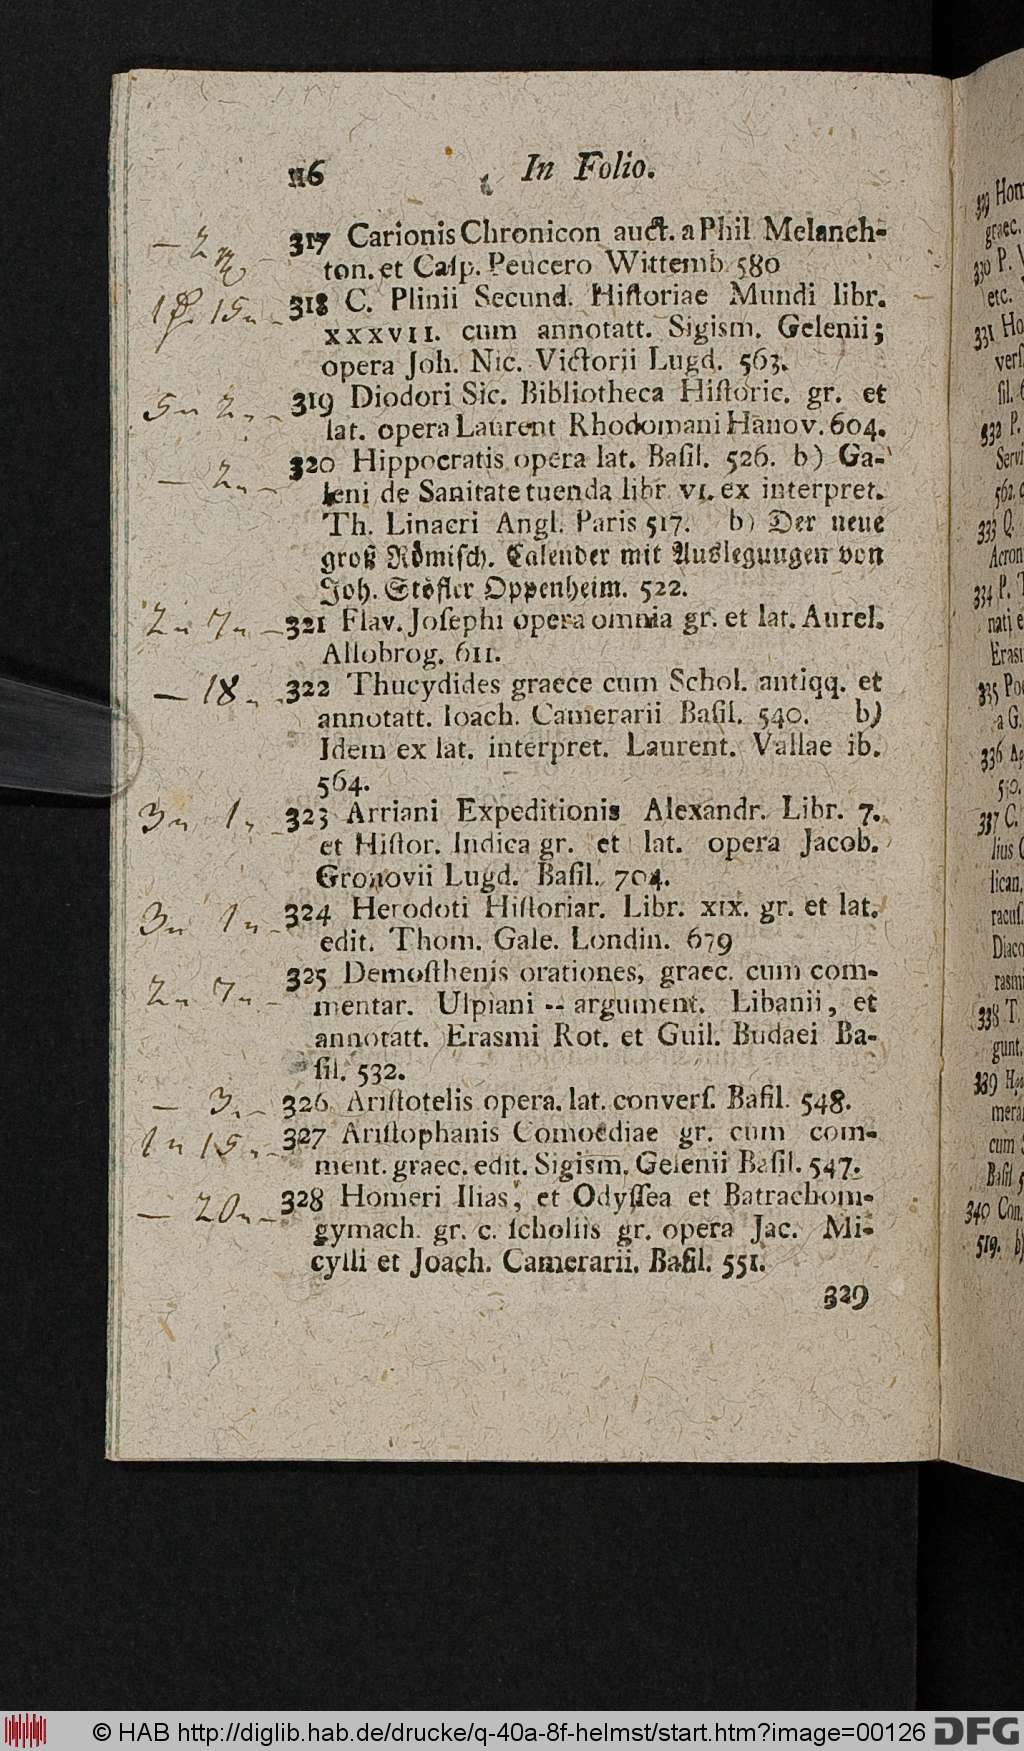 116 In Folio.
— 2
317 Carionis Chronicon auct. a Phil Melanch-
ton. et Casp. Peucero Wittemb. 580
1 15
318 C. Plinii Secund. Hiſtoriae Mundi libr.
XXXVII. cum annotatt. Sigism. Gelenii;
opera Joh. Nic. Victorii Lugd. 563.
5 2
319 Diodori Sic. Bibliotheca Hiſtoric. gr. et
lat. opera Laurent Rhodomani Hanov. 604.
— 2
320 Hippocratis opera lat. Baſil. 526. b) Ga-
leni de Sanitate tuenda libr. VI. ex interpret.
Th. Linacri Angl. Paris 517. b) Der neue
groß Römiſch. Calender mit Auslegungen von
Joh. Stöfler Oppenheim. 522.
2 7
321 Flav. Joſephi opera omnia gr. et lat. Aurel.
Allobrog. 611.
— 18
322 Thucydides graece cum Schol. antiqq. et
annotatt. Ioach. Camerarii Baſil. 540. b)
Idem ex lat. interpret. Laurent. Vallae ib.
564.
3 1
323 Arriani Expeditionis Alexandr. Libr. 7.
et Hiſtor. Indica gr. et lat. opera Jacob.
Gronovii Lugd. Baſil. 704.
3 1
324 Herodoti Hiſtoriar. Libr. XIX. gr. et lat.
edit. Thom. Gale. Londin. 679
2 7
325 Demoſthenis orationes, graec. cum com-
mentar. Ulpiani -- argument. Libanii, et
annotatt. Erasmi Rot. et Guil. Budaei Ba-
ſil. 532.
— 3
326 Ariſtotelis opera. lat. converſ. Baſil. 548.
1 15
327 Ariſtophanis Comoediae gr. cum com-
ment. graec. edit. Sigism. Gelenii Baſil. 547.
— 20
328 Homeri Ilias, et Odyſſea et Batrachom-
gymach. gr. c. ſcholiis gr. opera Jac. Mi-
cylli et Joach. Camerarii. Baſil. 551.
329
graec.
330 P.
etc.
331 Ho
332 P.
Servi
333 Q.
Acron
334 P.
nati e
335 Poe
a G.
336
337 C.
lius
lican,
Diaco
338 T.
gunt.
339
cum
340 Con.
519. b)
© HAB http://diglib.hab.de/drucke/q-40a-8f-helmst/start.htm?image=00126 DFG